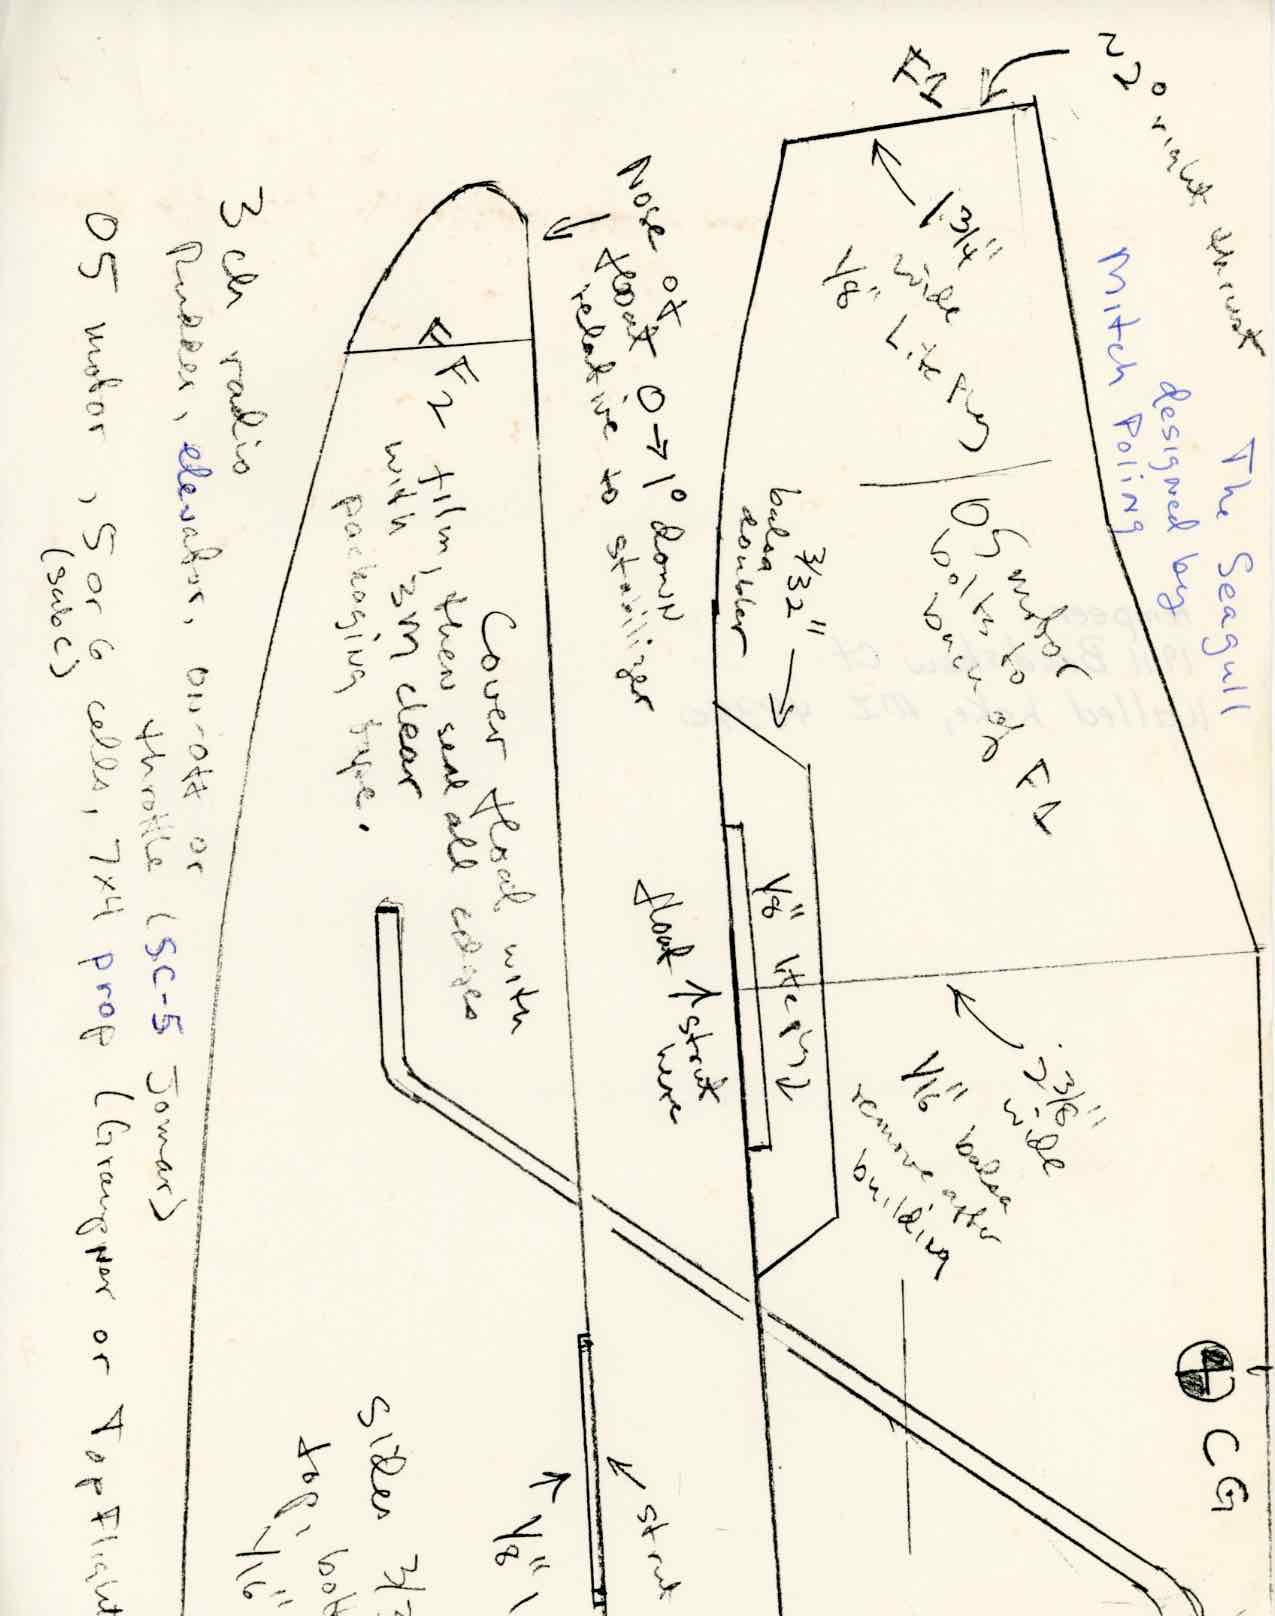 The Seagull
designed by
Mitch Poling
~2° right thrust
F1
1 3/4"
wide
1/8" Lite ply
05 motor
bolts to
back of F1
3/32"
balsa
doubler
1/8" lite ply
float strut
here
2 3/8"
wide
1/16" balsa
remove after
building
CG
Nose of
float 0→1° down
relative to stabilizer
F2
Cover float with
film, then seal all edges
with 3M clear
packaging tape.
strut
1/8"
Sides
top,
1/16"
3 ch radio
Rudder, elevator, on/off or
throttle (SC-5 Jomar)
05 motor, 5 or 6 cells, 7x4 prop (Graupner or TopFlight
(sub C)
Walled Lake, MI